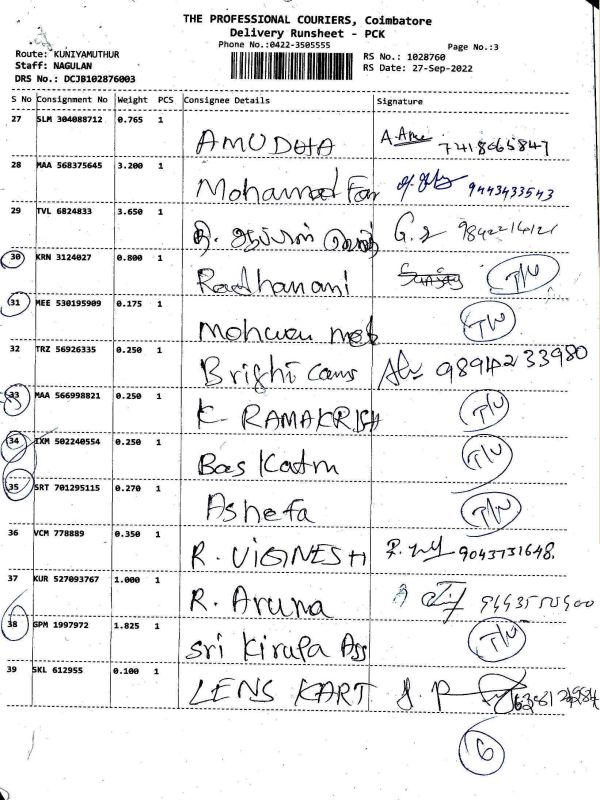 THE PROFESSIONAL COURIERS, Coimbatore
Delivery Runsheet - PCK
Phone No.:0422-3505555
Page No.:3
Route: KUNIYAMUTHUR
Staff: NAGULAN
DRS No.: DCJB102876003
RS No.: 1028760
RS Date: 27-Sep-2022
S No Consignment No Weight PCS Consignee Details Signature
27 SLM 304088712 0.765 1 AMUDHA 7418065847
28 MAA 568375645 3.200 1 Mohamed Far 9443433543
29 TVL 6824833 3.650 1 G.
30 KRN 3124027 0.800 1 Radhamani T/U
31 MEE 530195909 0.175 1 T/U
32 TRZ 56926335 0.250 1 Brighi cams 9894233980
33 MAA 566998821 0.250 1 K RAMAKRISH T/U
34 IXM 502240554 0.250 1 Bas Kadm T/U
35 SRT 701295115 0.270 1 Ashefa T/U
36 VCM 778889 0.350 1 R. VIGNESH 9043731648.
37 KUR 527093767 1.000 1 R. Aruna
38 GPM 1997972 1.825 1 Sri Kirupa Ass T/U
39 SKL 612955 0.100 1 LENS KART
6